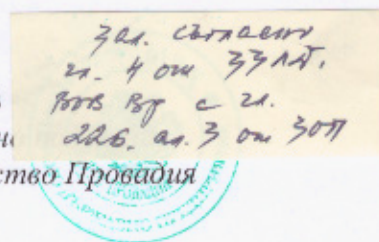 Зал. съгласно
чл. 4 от ЗЗЛД.
във вр с чл.
22б. ал. 3 от ЗОП
ство Провадия